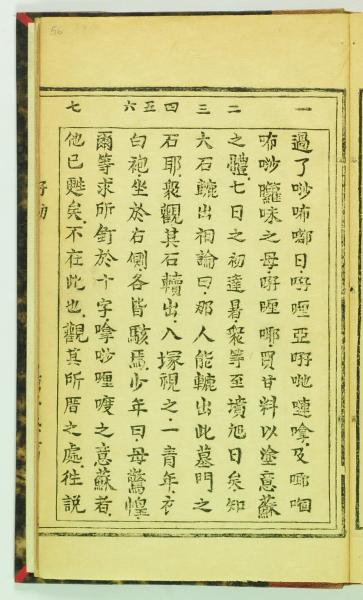 56
一 二 三 四 五 六 七
過了唦咘日哩亞嗹嗱及
咘唦之母哩買甘料以塗意蘇
之體七日之初達暑衆等至墳旭日矣知
大石轆出相論曰那人能轆出此墓門之
石耶衆觀其石出入塚視之一青年衣
白袍坐於右側各皆駭焉少年曰毋驚惶
爾等求所釘於十字嗱唦哩之意蘇者
他已甦矣不在此也觀其所厝之處往説